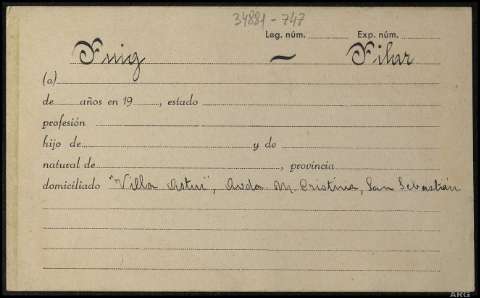 34881-747
Leg. núm. Exp. núm.
Puig — Pilar
(a)
de años en 19 , estado
profesión
hijo de y de
natural de , provincia
domiciliado "Villa Astur", Avda M. Cristina, San Sebastián
ARG